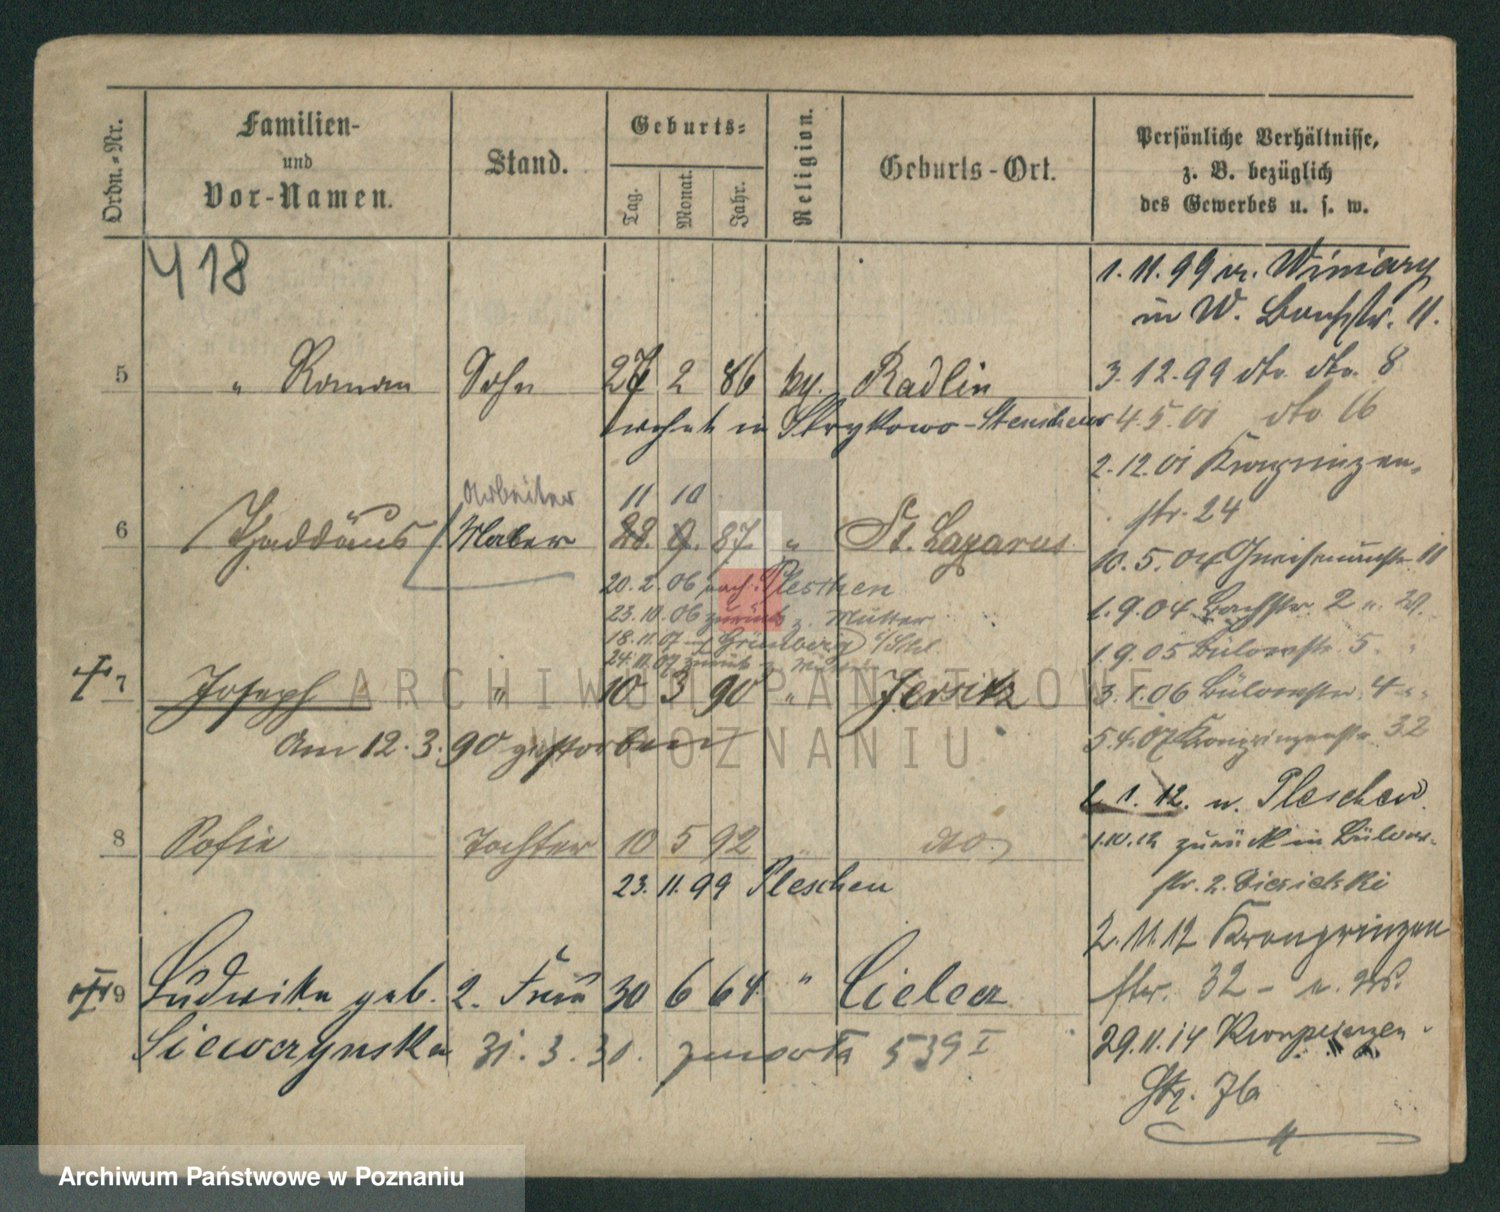 Ordn.-Nr.
Familien-
und
Vor-Namen.
Stand.
Geburts-
Tag.
Monat.
Jahr.
Religion.
Geburts-Ort.
Persönliche Verhältnisse,
z. B. bezüglich
des Gewerbes u. s. w.
418
1.11.99 v. Winiary
in W. Bachstr. 11.
5 " Roman Sohn 27 2 86 kg. Radlin
3.12.99 dto. dto. 8
wohnt in Strykowo-Stenschewo
4.5.01 dto 16
2.12.01 Kronprinzen-
str. 24
Arbeiter 11 10
6 Thaddäus Maler 28. 9. 87 " St. Lazarus
10.5.04 Gneisenaustr. 11
20.2.06 nach Pleschen
1.9.04 Bachstr. 2
23.10.06 zurück z. Mutter
18.11.07 Grünberg i/Schl.
1.9.05 Bülowstr. 5.
24.11.07 zurück z. Mutter
7 Joseph " 10 3 90 " Jersitz
3.1.06 Bülowstr. 4
Am 12.3.90 gestorben
5.4.07 Kronprinzenstr. 32
2.1.12. n. Pleschen
8 Sofie Tochter 10 5 92 " dto.
1.10.12 zurück in Bülow-
str. 2.
23.11.99 Pleschen
2.11.12 Kronprinzen
str. 32
9 Ludwika geb. 2. Frau 30 6 64 " Cielcza
29.11.14 Kronprinzen
Siewczynska 31.3.30. zmarła 539 I
Str. 76
ARCHIWUM PAŃSTWOWE
W POZNANIU
Archiwum Państwowe w Poznaniu